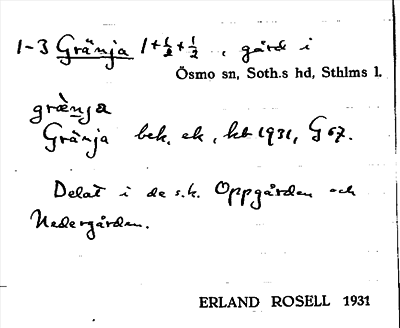 1-3 Gränja 1+½+½, gård i
Ösmo sn, Soth.s hd, Sthlms l.
grä̀nja
Gränja bek. ek, kb 1931, G 67.
Delat i de s.k. Oppgården och
Nedergården.
ERLAND ROSELL 1931